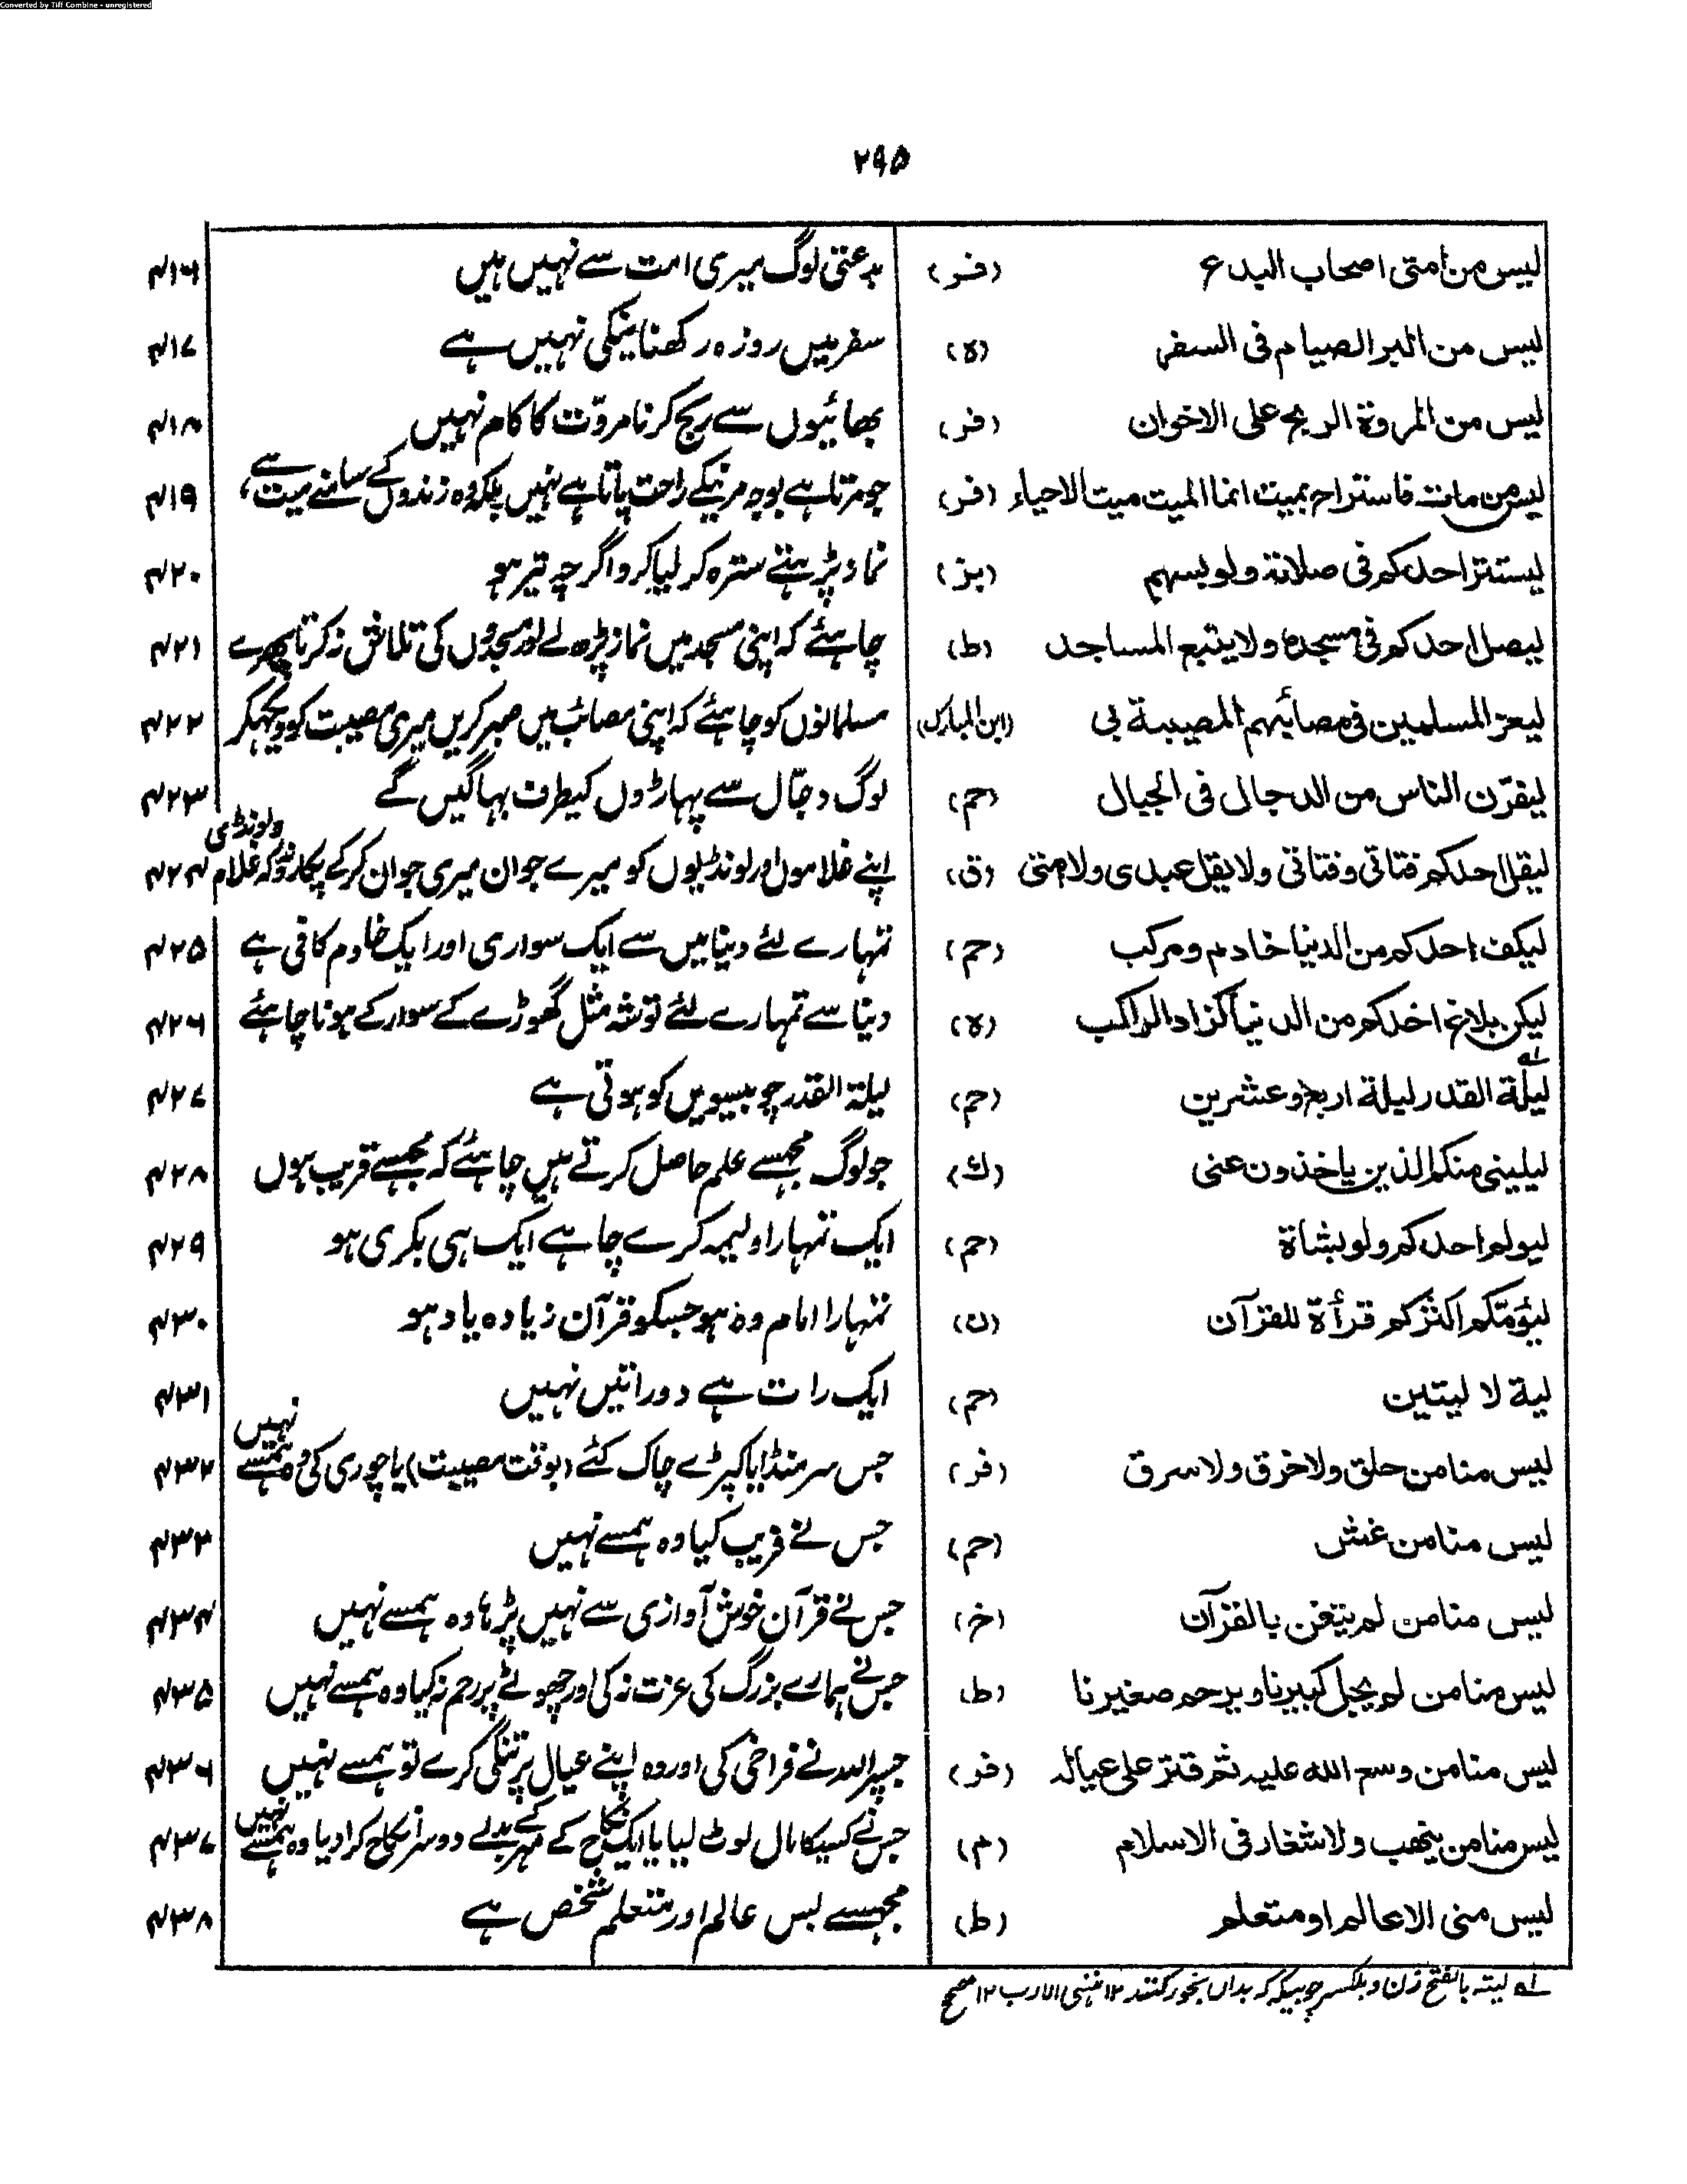 Converted by Tiff Combine - unregistered
۲۹۵
لیس من امتی اصحاب البدع (فر) بدعتی لوگ میری امت سے نہیں ہیں ۴۱۶
لیس من البر الصیام فی السفر (ہ) سفر میں روزہ رکھنا نیکی نہیں ہے ۴۱۷
لیس من المروة الربح علی الاخوان (فر) بھائیوں سے ربح کرنا مروّت کا کام نہیں ۴۱۸
لیس من مات فاستراح بمیت انما المیت میت الاحیاء (فر) جو مرتا ہے بوجہ مرنیکے راحت پاتا ہے نہیں بلکہ وہ زندوں کے سامنے میت ہے، ۴۱۹
لیستتر احدکم فی صلاتہ ولو بسہم (بز) نماز پڑہتے سترہ کر لیا کرو اگرچہ تیر ہو ۴۲۰
لیصل احدکم فی مسجدہ ولا یتبع المساجد (ط) چاہئے کہ اپنی مسجد میں نماز پڑھ لے اور مسجدوں کی تلاش نہ کرتا پھرے ۴۲۱
لیعز المسلمین فی مصائبہم المصیبة بی (ابن المبارک) مسلمانوں کو چاہئے کہ اپنی مصائب میں صبر کریں میری مصیبت کو دیکھکر ۴۲۲
لیفرّن الناس من الدجال فی الجبال (حم) لوگ دجّال سے پہاڑوں کیطرف بہاگیں گے ۴۲۳
لیقل احدکم فتای وفتاتی ولا یقل عبدی ولا امتی (ق) اپنے غلاموں اور لونڈیوں کو میرے جوان میری جوان کرکے پکارو نہ کہ غلام ولونڈی ۴۲۴
لیکف احدکم من الدنیا خادم ومرکب (حم) تمہارے لئے دنیا میں سے ایک سواری اور ایک خادم کافی ہے ۴۲۵
لیکن بلاغ احدکم من الدنیا کزاد الراکب (ہ) دنیا سے تمہارے لئے توشہ مثل گھوڑے کے سوار کے ہونا چاہئے ۴۲۶
لیلة القدر لیلة اربع وعشرین (حم) لیلة القدر چوبیسویں کو ہوتی ہے ۴۲۷
لیلینی منکم الذین یاخذون عنی (ك) جو لوگ مجہسے علم حاصل کرتے ہیں چاہئے کہ مجہسے قریب ہوں ۴۲۸
لیولم احدکم ولو بشاة (حم) ایک تمہارا ولیمہ کرے چاہے ایک ہی بکری ہو ۴۲۹
لیؤمّکم اکثرکم قرأة للقرآن (ن) تمہارا امام وہ ہو جسکو قرآن زیادہ یاد ہو ۴۳۰
لیة لا لیتین (حم) ایک رات ہے دو راتیں نہیں ۴۳۱
لیس منا من حلق ولا خرق ولا سرق (فر) جس سر منڈایا کپڑے چاک کئے (بوقت مصیبت) یا چوری کی وہ ہمسے نہیں ۴۳۲
لیس منا من غش (حم) جس نے فریب کیا وہ ہمسے نہیں ۴۳۳
لیس منا من لم یتغن بالقرآن (خ) جس نے قرآن خوش آوازی سے نہیں پڑہا وہ ہمسے نہیں ۴۳۴
لیس منا من لم یجل کبیرنا ویرحم صغیرنا (ط) جس نے ہمارے بزرگ کی عزت نہ کی اور چھوٹے پر رحم نہ کیا وہ ہمسے نہیں ۴۳۵
لیس منا من وسع اللہ علیہ ثم قتر علی عیالہ (فر) جسپر اللہ نے فراخی کی اور وہ اپنے عیال پر تنگی کرے تو ہمسے نہیں ۴۳۶
لیس منا من ینھب ولا شغار فی الاسلام (م) جس نے کسیکا مال لوٹ لیا یا ایک نکاح کے مہر کے بدلے دوسرا نکاح کرا دیا وہ ہمسے نہیں ۴۳۷
لیس منی الا عالم او متعلم (ط) مجہسے بس عالم اور متعلم شخص ہے ۴۳۸
لہ لیتہ بالفتح زن وبکسر چوبیکہ کہ بداں بخور کنند ۱۲ منتہی الارب ۱۲ مصحح